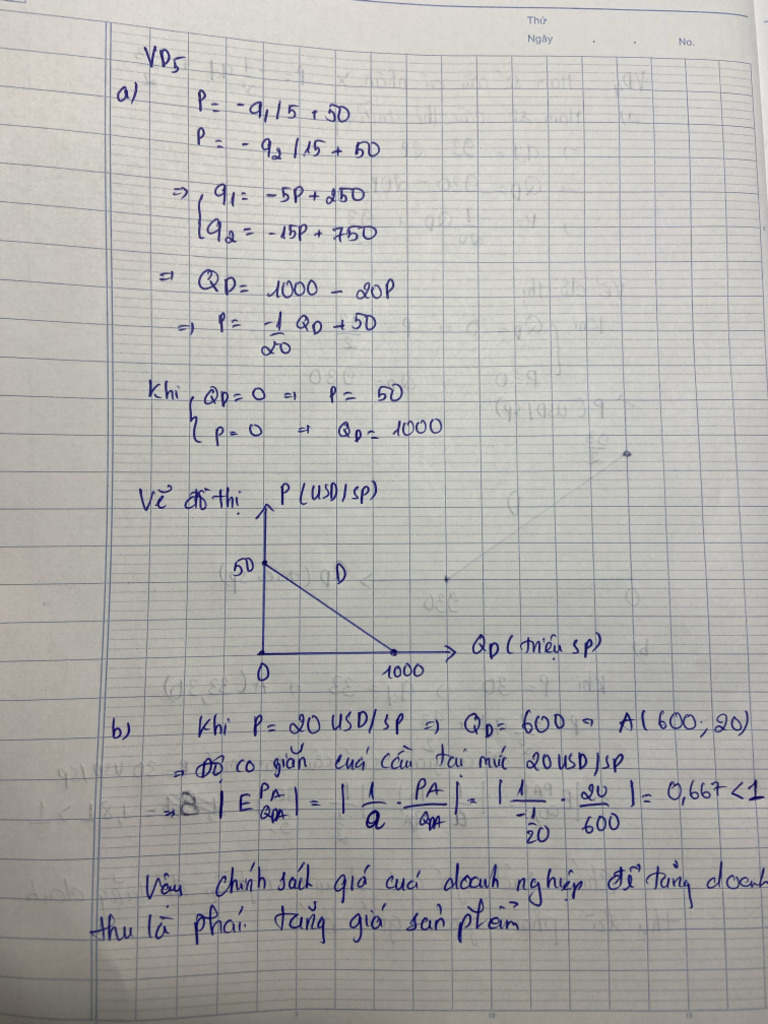 Thứ
Ngày . . No.
VD5
a) P = -q₁/5 + 50
P = - q₂/15 + 50
=> { q₁ = -5P + 250
q₂ = -15P + 750
=> QD = 1000 - 20P
=> P = -1/20 QD + 50
Khi { QD = 0 => P = 50
P = 0 => QD = 1000
Vẽ đồ thị P (USD/SP)
50 D
QD (triệu SP)
0 1000
b) Khi P = 20 USD/SP => QD = 600 => A(600; 20)
=> Độ co giãn cuả cầu tại mức 20 USD/SP
=> |E PA QDA| = |1/a . PA/QDA| = |1/(-1/20) . 20/600| = 0,667 < 1
Vậy chính sách giá cuả doanh nghiệp để tăng doanh
thu là phải tăng giá sản phẩm